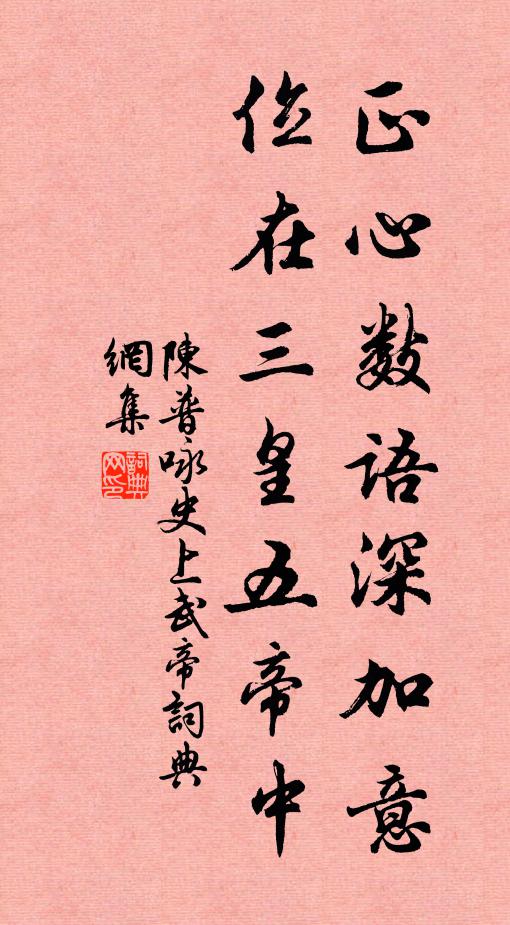 正心数语深加意
位在三皇五帝中
陳普咏史上武帝詞典
網集
詞典网印